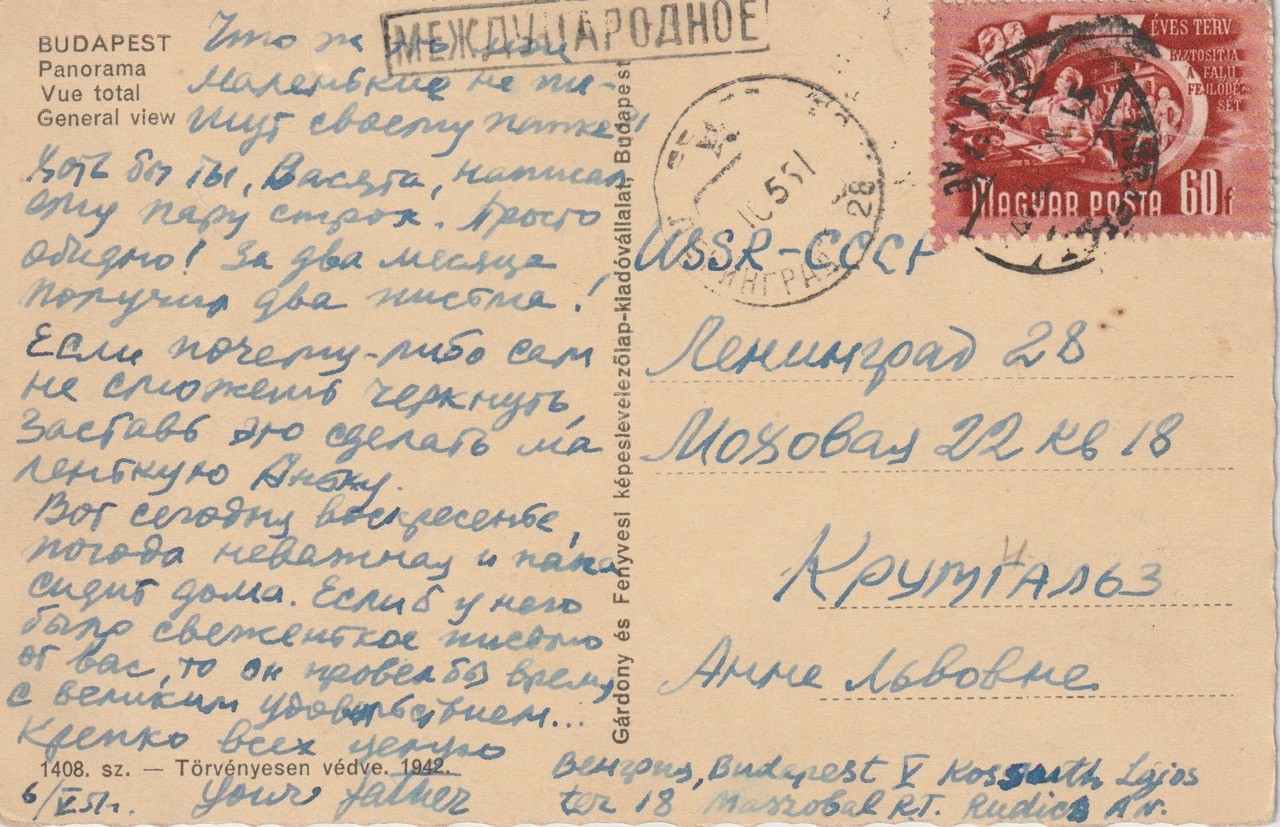 BUDAPEST
Panorama
Vue total
General view
МЕЖДУНАРОДНОЕ
Что же мои
маленькие не пи-
шут своему папке?!
Хоть бы ты, Васята, написал
ему пару строк. Просто
обидно! За два месяца
получил два письма!
Если почему-либо сам
не сможешь черкнуть,
заставь это сделать ма
ленькую Аньку.
Вот сегодня воскресенье,
погода неважная и папа
сидит дома. Если б у него
было свеженькое письмо
от вас, то он провел бы время
с великим удовольствием...
Крепко всех целую
1408. sz. — Törvényesen védve. 1942.
6/V 51г. Your father
Gárdony és Fenyvesi képeslevelezőlap-kiadóvállalat, Budapest
ÉVES TERV
BIZTOSITJA
A FALU
FEJLŐDÉ-
SÉT
MAGYAR POSTA 60f
10 5 51
28
USSR-СССР
Ленинград 28
Моховая 22 кв 18
Крумгальз
Анне Львовне
Венгрия, Budapest V Kossuth Lajos
ter 18 Maszobal RT. Rudics A. v.